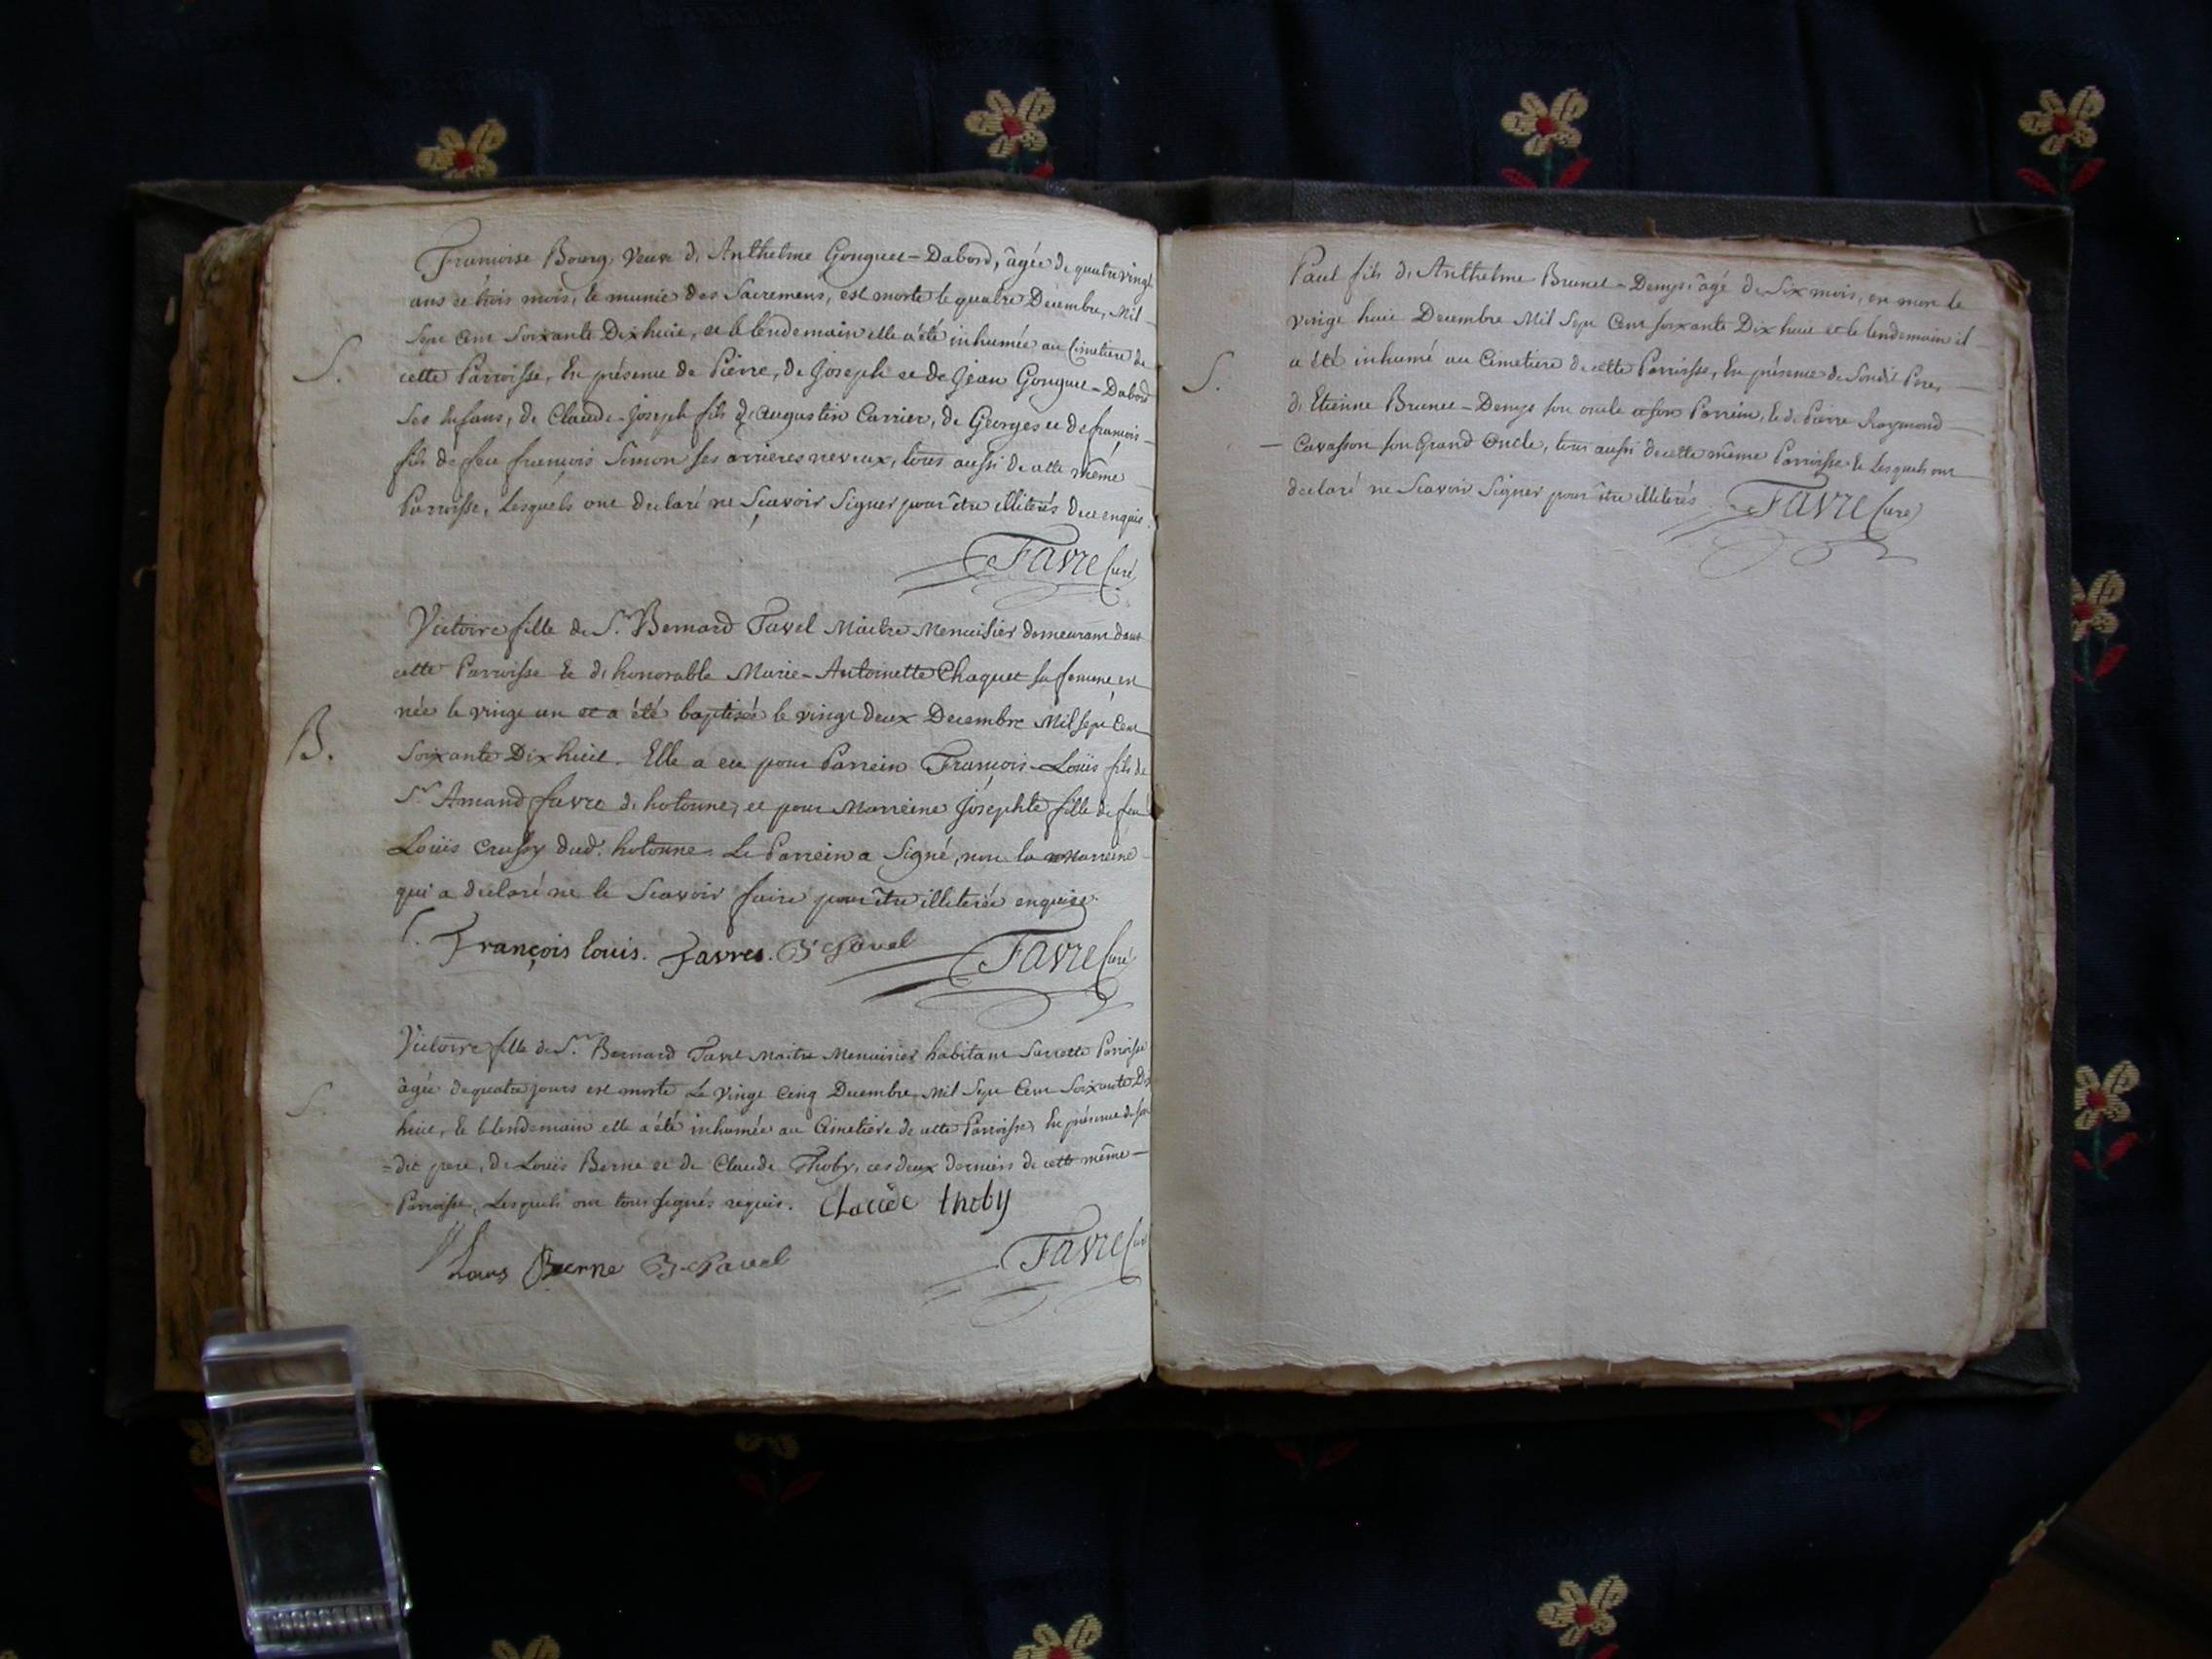 Françoise Bourg veuve de Anthelme Gonguet-Dabord, âgée de quatre vingt
ans et trois mois, et munie des Sacremens, est morte le quatre Decembre, Mil
Sept Cent Soixante Dix huit, et le lendemain elle a été inhumée au Cimetiere de
S.
cette Parroisse, En présence de Pierre, de Joseph et de Jean Gonguet-Dabord
Ses Enfans, de Claude-Joseph fils d'augustin Carrier, de Georges et de françois
fils de feu françois Simon ses arrieres neveux, tous aussi de cette même
Parroisse, Lesquels ont declaré ne Sçavoir Signer pour être illiterés de ce enquis.
Favre Curé
Victoire fille de Sr. Bernard Favel Maitre Menuisier demeurant dans
cette Parroisse et de honorable Marie-Antoinette Chaquet sa femme, est
née le vingt un et a été baptisée le vingt deux Decembre Mil Sept Cent
B.
Soixante Dix huit. Elle a eu pour Parrein François-Loüis fils de
Sr. Amand favre de hotonne, et pour Marreine Josephte fille de feu
Loüis Crussy dud. hotonne. Le Parrein a Signé, non la Marreine
qui a declaré ne le Scavoir faire pour être illiterée enquise.
François louis. Favre. B Favel Favre Curé
Victoire fille de Sr. Bernard Favel Maitre Menuisier habitant Sur cette Parroisse
âgée de quatre jours est morte Le vingt Cinq Decembre Mil Sept Cent Soixante Dix
S.
huit, et le lendemain elle a été inhumée au Cimetiere de cette Parroisse, En présence de son
=dit pere, de Loüis Berne et de Claude Thoby, ces deux derniers de cette même
Parroisse, Lesquels ont tous signés requis. Claude thoby
Louis Berne B Favel Favre Curé
Paul fils de Anthelme Brunet-Denys âgé de Six mois, est mort le
vingt huit Decembre Mil Sept Cent soixante Dix huit et le lendemain il
a été inhumé au Cimetiere de cette Parroisse, En présence de Sondit Pere,
S.
de Etienne Brunet-Denys son oncle et son Parrein, et de Pierre Raymond
- Cavasson son Grand Oncle, tous aussi de cette même Parroisse et Lesquels ont
declaré ne Scavoir Signer pour être illiterés Favre Curé